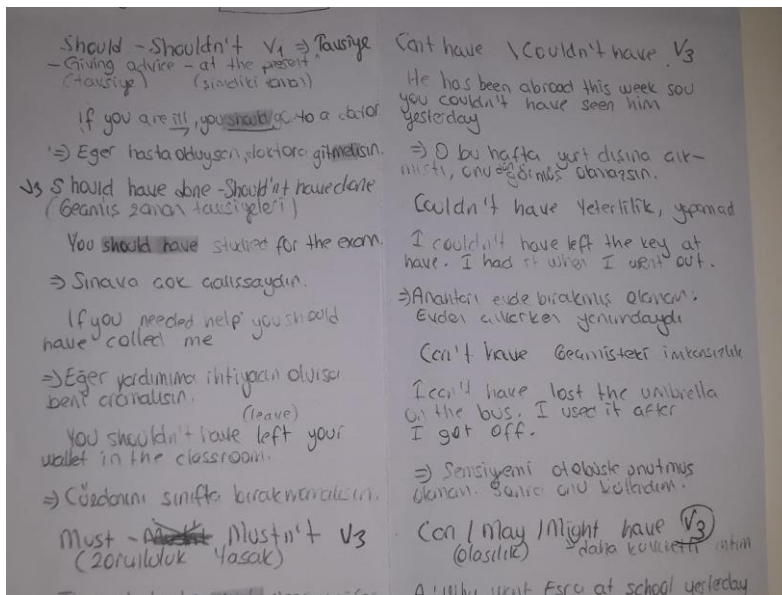 Should - Shouldn't V1 ⇒ Tavsiye
- Giving advice - at the present
(tavsiye) (şimdiki zaman)
If you are ill, you should go to a doctor
⇒ Eğer hasta olduysan, doktora gitmelisin.
V3 Should have done - Should'nt have done
(Geçmiş zaman tavsiyeleri)
You should have studied for the exam.
⇒ Sınava çok çalışsaydın.
If you needed help you should
have called me
⇒ Eğer yardımıma ihtiyacın olursa
beni aramalısın.
(leave)
You shouldn't have left your
wallet in the classroom.
⇒ Cüzdanını sınıfta bırakmamalısın.
Must - Mustn't V3
(Zorunluluk Yasak)
Can't have \ Couldn't have V3
He has been abroad this week sou
you couldn't have seen him
yesterday
⇒ O bu hafta yurt dışına çık-
mıştı, onu görmüş olamazsın.
Couldn't have Yeterlilik,
I couldn't have left the key at
have. I had it when I went out.
⇒ Anahtarı evde bırakmış olamam.
Evden çıkarken yanımdaydı
Can't have Geçmişteki imkansızlık
I can't have lost the umbrella
on the bus. I used it after
I got off.
⇒ Şemsiyemi otobüste unutmuş
olamam. Sonra onu kullandım.
Can / May / Might have V3
(olasılık) daha kuvvetli
Esra at school yesterday